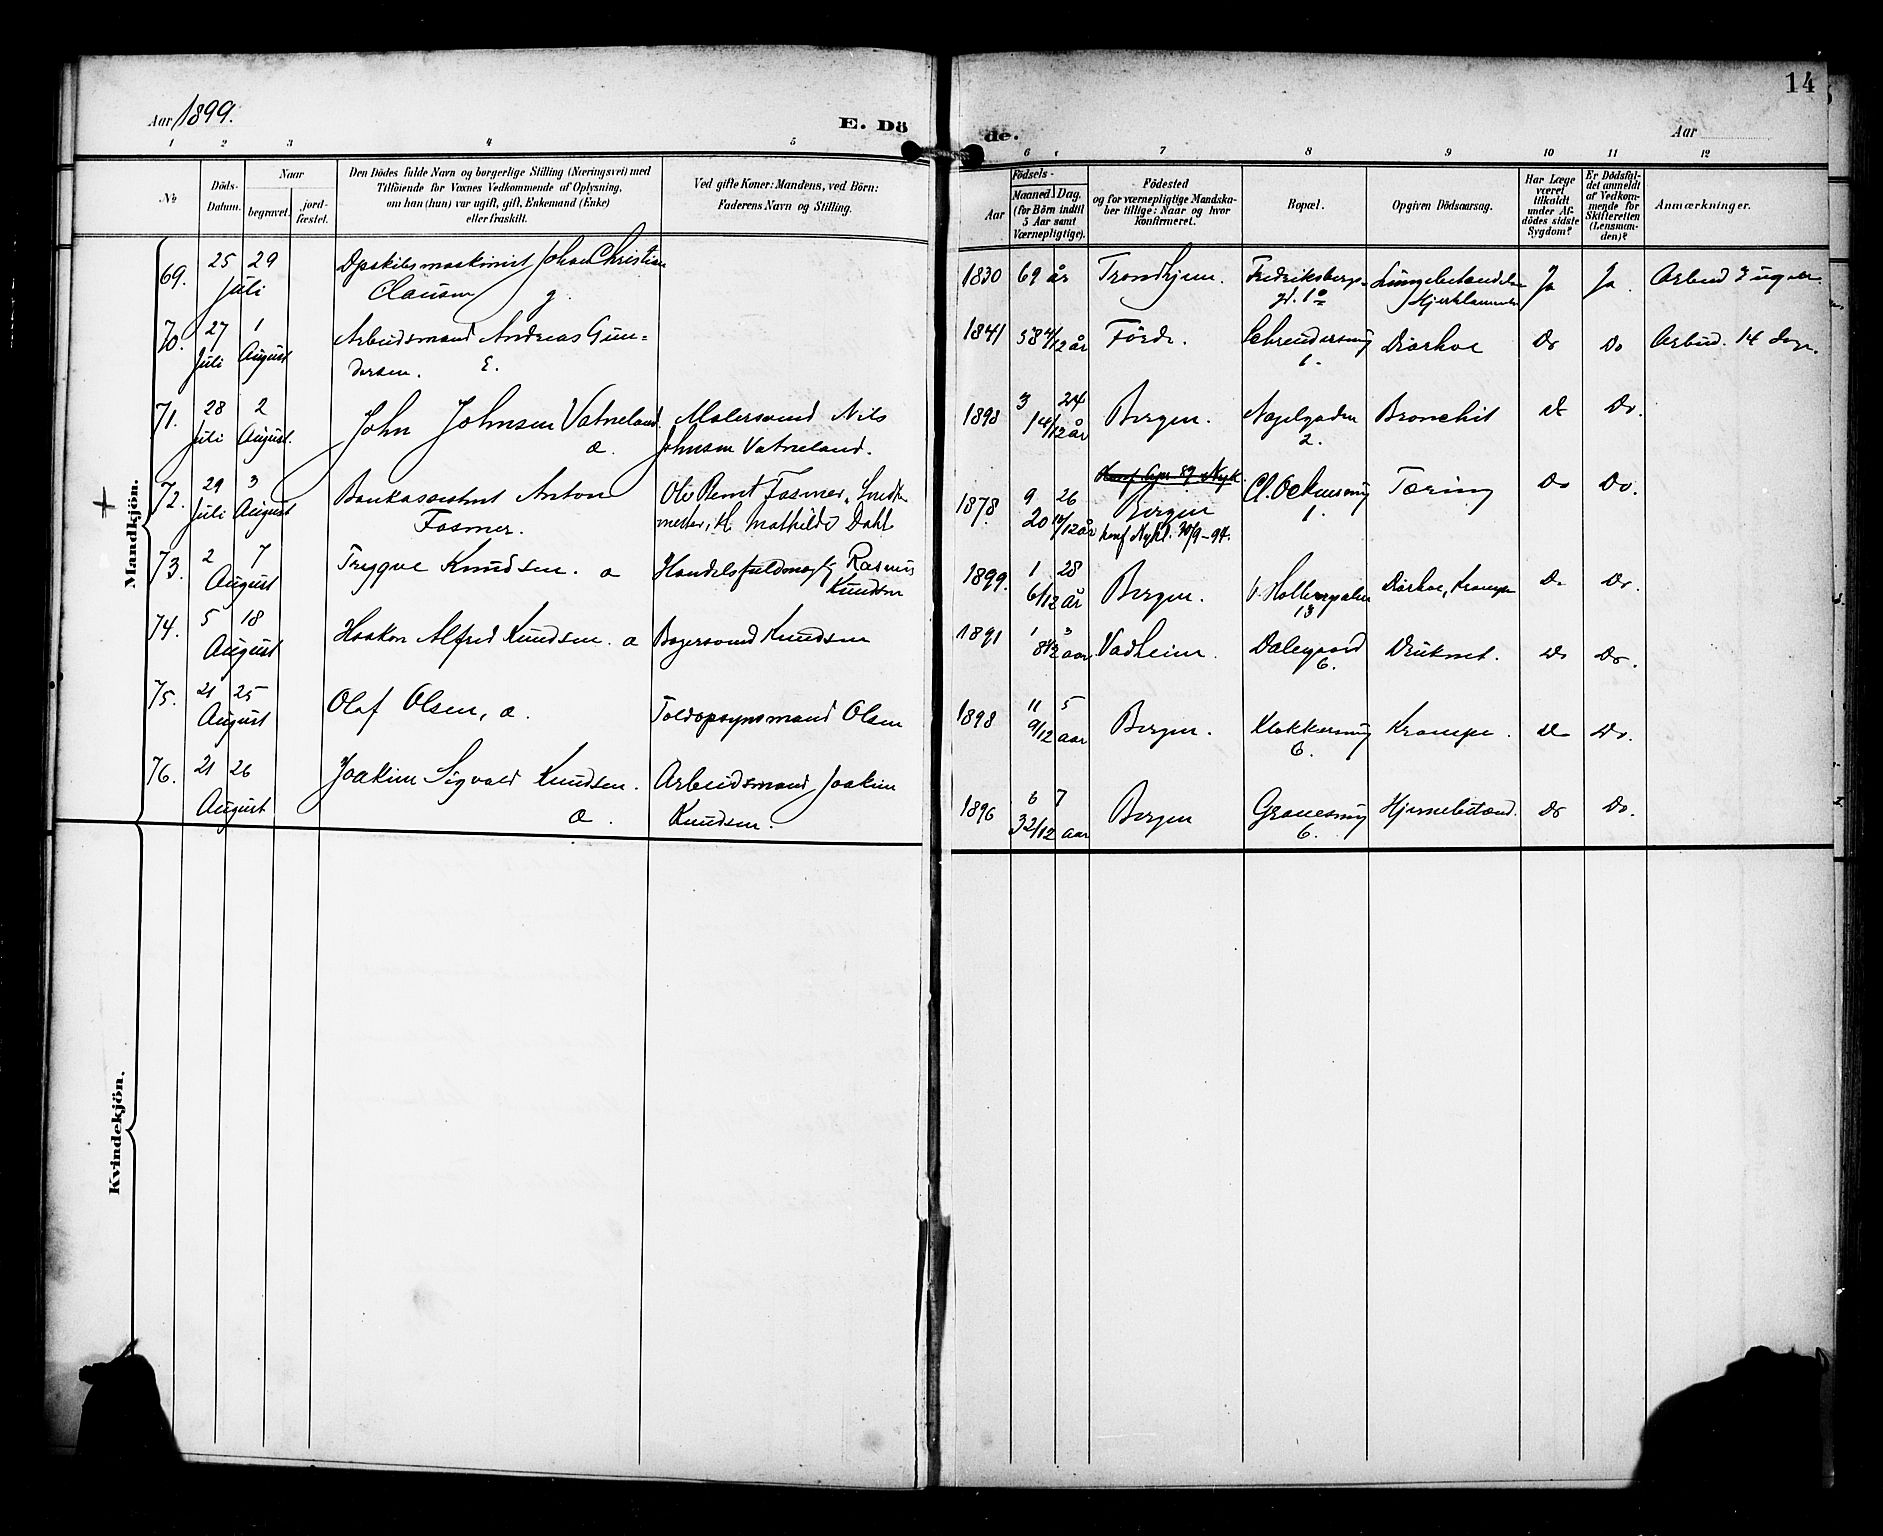 14
Aar 1899.
E. Dö
de.
Aar
1 2 3 4 5
6 7 8 9 10 11 12
No
Döds-
Datum.
Naar
begravet.
jord-
fæstet.
Den Dödes fulde Navn og borgerlige Stilling (Næringsvei) med
Tilföiende for Voxnes Vedkommende af Oplysning,
om han (hun) var ugift, gift, Enkemand (Enke)
eller fraskilt.
Ved gifte Koner: Mandens, ved Börn:
Faderens Navn og Stilling.
Födsels-
Aar
Maaned
Dag.
(for Börn indtil
5 Aar samt
Værnepligtige).
Födested
og for værnepligtige Mandska-
ber tillige: Naar og hvor
konfirmeret.
Bopæl.
Opgiven Dödsaarsag.
Har Læge
været
tilkaldt
under Af-
dödes sidste
Sygdom?
Er Dödsfal-
det anmeldt
af Vedkom-
mende for
Skifteretten
(Lensman-
den)?
Anmærkninger.
Mandkjön.
69. 25 29 Juli
Johan Christian
Clausen g.
1830 69 år Trondhjem. Fredriksbergs-
Ja Ja.
70. 27 Juli 1 August
Arbeidsmand Andreas Gun-
dersen. E.
1841 58 4/12 år Förde. Diarhoe Do Do 14 Dage.
71. 28 Juli 2 August.
John Johnsen Vatneland. a.
Malersvend Nils
Johnsen Vatneland.
1898 3 24
1 4/12 år Bergen. Nøgelgaden
2. Bronchit do Do.
72. 29 Juli 3 August
Bankassistent Anton
Fasmer.
Ole Bernt Fasmer,
mester, H. Mathilde Dahl
1878. 9 26
20 10/12 år Bergen
konf Nykl. 30/9-94.
1. Tæring Do Do.
73. 2 7 August
Trygve Knudsen. a
Handelsfuldmægtig Rasmus
Knudsen
1899. 1 28
6/12 år Bergen.
13 Diarhoe, Krampe Do Do.
74. 5 18 August
Haakon Alfred Knudsen. a
Bagersvend Knudsen
1891 1 3
aar Vadheim. Dalegaard
6. Druknet. Do Do.
75. 21 25 August
Olaf Olsen, a.
Toldopsynsmand Olsen
1898 11 5
9/12 aar Bergen. Klokkersmug
6. Krampe. do Do.
76. 21 26 August
Joakim Sigvald Knudsen.
a.
Arbeidsmand Joakim
Knudsen.
1896 6 7
3 2/12 aar Bergen
6. Hjernebetænd. Do Do.
Kvindekjön.